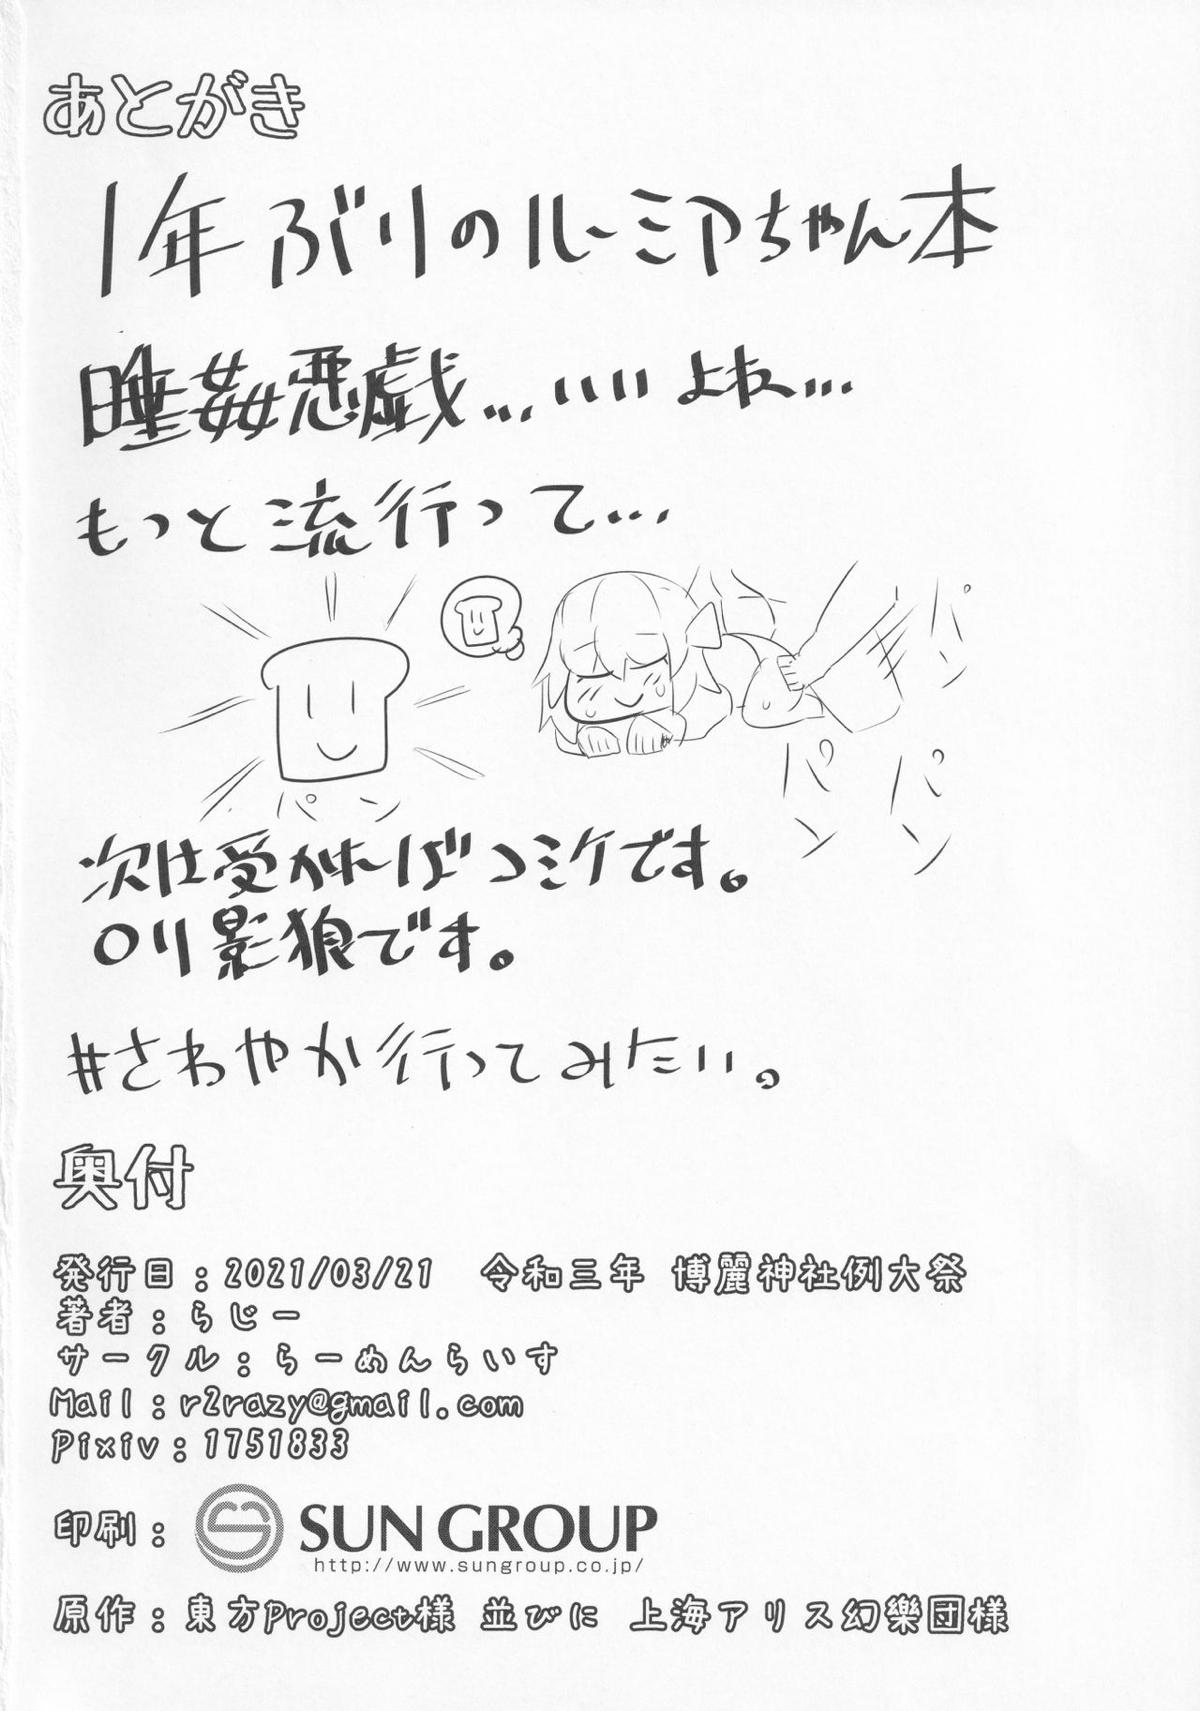 あとがき
1年ぶりのルーミアちゃん本
睡姦悪戯...いいよね...
もっと流行って...
パン
パン
パン
パン
次は受かればコミケです。
〇リ影狼です。
#さわやか行ってみたい。
奥付
発行日:2021/03/21 令和三年 博麗神社例大祭
著者:らじー
サークル:らーめんらいす
Mail:r2razy@gmail.com
Pixiv:1751833
印刷: SUN GROUP
http://www.sungroup.co.jp/
原作:東方Project様 並びに 上海アリス幻樂団様